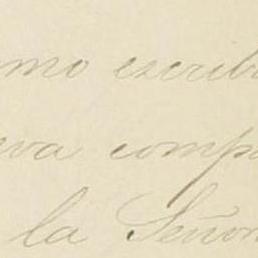 omo escrib
eva compa
la Señor